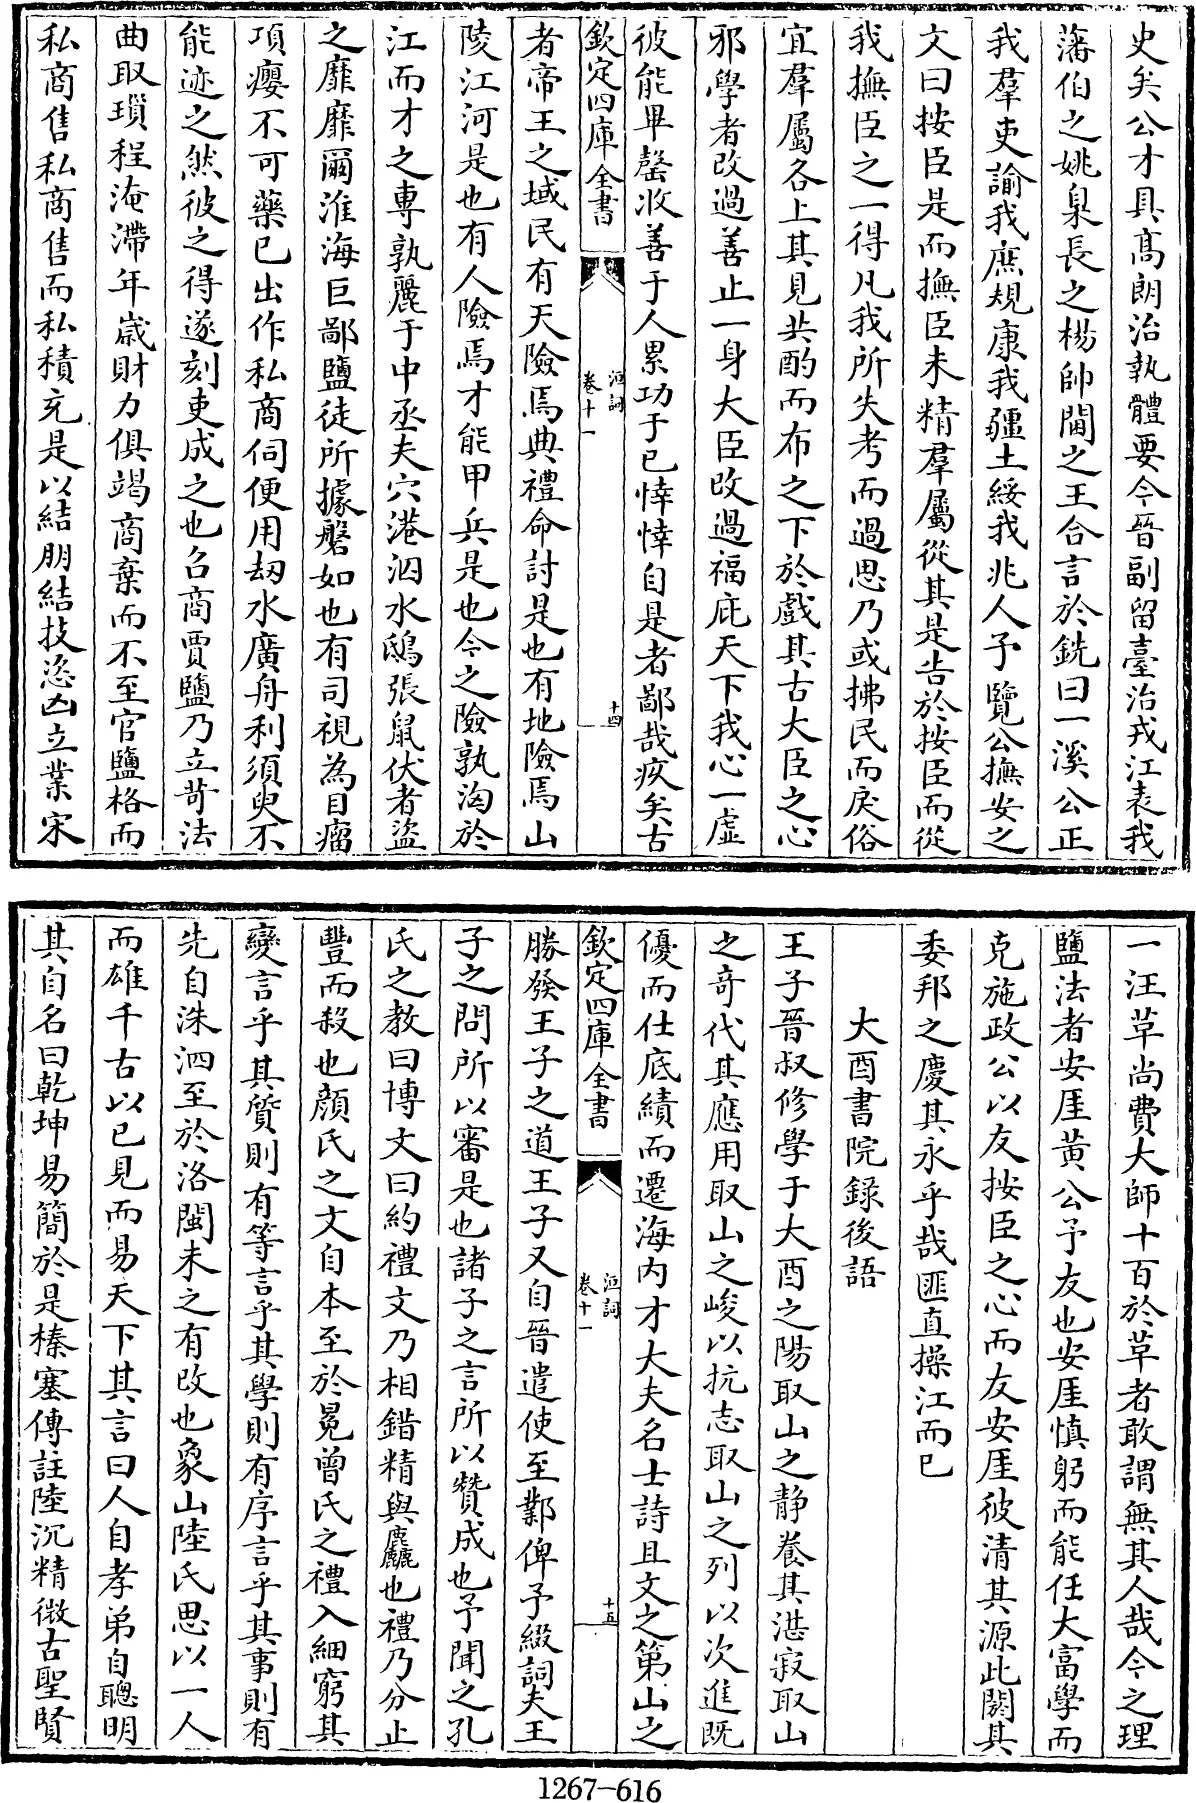 史矣公才具髙朗治執體要今晉副留臺治戎江表我
藩伯之姚臬長之楊帥閫之王合言於銑曰一溪公正
我羣吏諭我庶規康我疆土綏我兆人予覽公撫安之
文曰按臣是而撫臣未精羣屬從其是告於按臣而從
我撫臣之一得凡我所失考而過思乃或拂民而戾俗
宜羣屬各上其見共酌而布之下於戲其古大臣之心
邪學者改過善止一身大臣改過福庇天下我心一虛
彼能畢罄收善于人累功于已悻悻自是者鄙哉疚矣古
欽定四庫全書
洹詞
卷十一
十四
者帝王之域民有天險焉典禮命討是也有地險焉山
陵江河是也有人險焉才能甲兵是也今之險孰洶於
江而才之專孰麗于中丞夫穴港泅水鴟張鼠伏者盜
之靡靡爾淮海巨鄙鹽徒所據磐如也有司視為目瘤
項癭不可藥已出作私商伺便用刼水廣舟利須臾不
能迹之然彼之得遂刻吏成之也召商賈鹽乃立苛法
曲取瑣程淹滯年嵗財力俱竭商棄而不至官鹽格而
私商售私商售而私積充是以結朋結技恣凶立業宋
一汪草尚費大師十百於草者敢謂無其人哉今之理
鹽法者安厓黄公予友也安厓慎躬而能任大富學而
克施政公以友按臣之心而友安厓彼清其源此闕其
委邦之慶其永乎哉匪直操江而已
大酉書院錄後語
王子晉叔修學于大酉之陽取山之靜養其湛寂取山
之竒代其應用取山之峻以抗志取山之列以次進既
優而仕底績而遷海内才大夫名士詩且文之第山之
欽定四庫全書
洹詞
卷十一
十五
勝發王子之道王子又自晉遣使至鄴俾予綴詞夫王
子之問所以審是也諸子之言所以贊成也予聞之孔
氏之教曰博文曰約禮文乃相錯精與麤也禮乃分止
豐而殺也顔氏之文自本至於冕曽氏之禮入細窮其
變言乎其質則有等言乎其學則有序言乎其事則有
先自洙泗至於洛閩未之有改也象山陸氏思以一人
而雄千古以已見而易天下其言曰人自孝弟自聰明
其自名曰乾坤易簡於是榛塞傳註陸沉精微古聖賢
1267-616